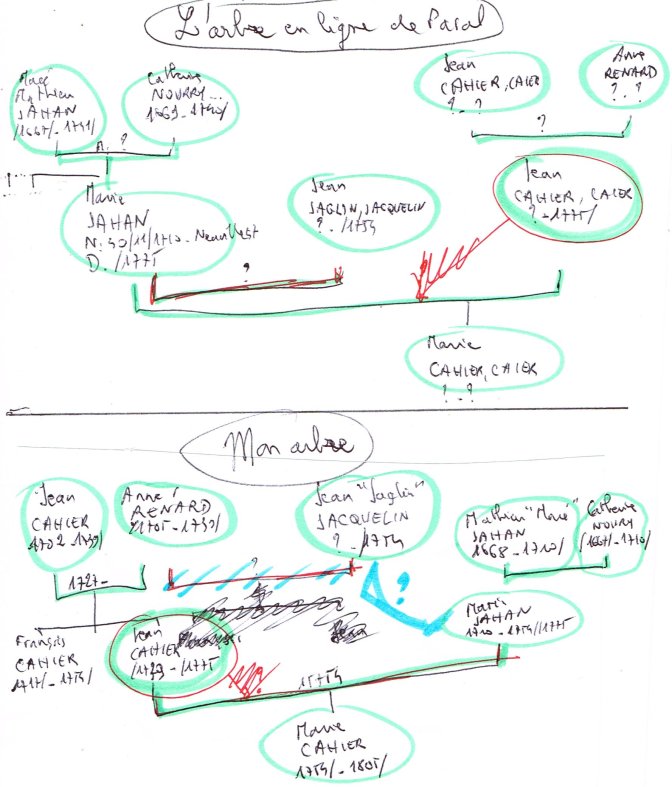 L'arbre en ligne de Pascal
Macé
Mathieu
SAHAN
/1667/-1741/
Catherine
NOURRY...
1669-1740/
Jean
CAHIER, CAIER
?-?
Anne
RENARD
?-?
?
?
Marie
SAHAN
N: 30/11/1710-Neuvillest
D. /1775
Jean
JAGLIN, JACQUELIN
?-/1754
Jean
CAHIER, CAIER
?-1775/
?
Marie
CAHIER, CAIER
?-?
Mon arbre
Jean
CAHIER
1702-1739/
Anne
RENARD
1705-1739/
Jean "Jaglin"
JACQUELIN
?-/1754
Mathieu "Macé"
SAHAN
1668-1710/
Catherine
NOURY
/1667/-1710/
1727-
?
?
François
CAHIER
1717/-1754/
Jean
CAHIER
/1729-/1775
Marie
SAHAN
1710-1754/1775
?
1754
Marie
CAHIER
1754/-1805/